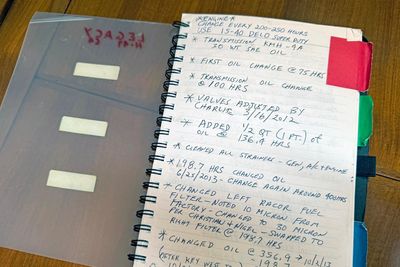 *ENGINE*
CHANGE EVERY 200-250 HOURS
USE 15-40 DELO SUPER DUTY
* TRANSMISSION KMH-4A
30 WT SAE OIL
* FIRST OIL CHANGE @ 75 HRS
* TRANSMISSION OIL CHANGE
@ 100 HRS
* VALVES ADJUSTED BY
CHARLIE 3/16/2012
* ADDED 1/2 QT (1 PT.) of
OIL @ 136.9 HRS
* CLEANED ALL STRAINERS - GEN, A/C + ENGINE
* 198.7 HRS CHANGED OIL
6/25/2013 - CHANGE AGAIN AROUND 400HRS
* CHANGED LEFT RACOR FUEL
FILTER - NOTED 10 MICRON FROM
FACTORY - CHANGED TO 30 MICRON
PER CHRISTIAN + NIGEL - SWAPPED TO
RIGHT FILTER @ 198.7 HRS
* CHANGED OIL @ 356.9 → 10/2/13
(AFTER KEY WEST
LEGACY